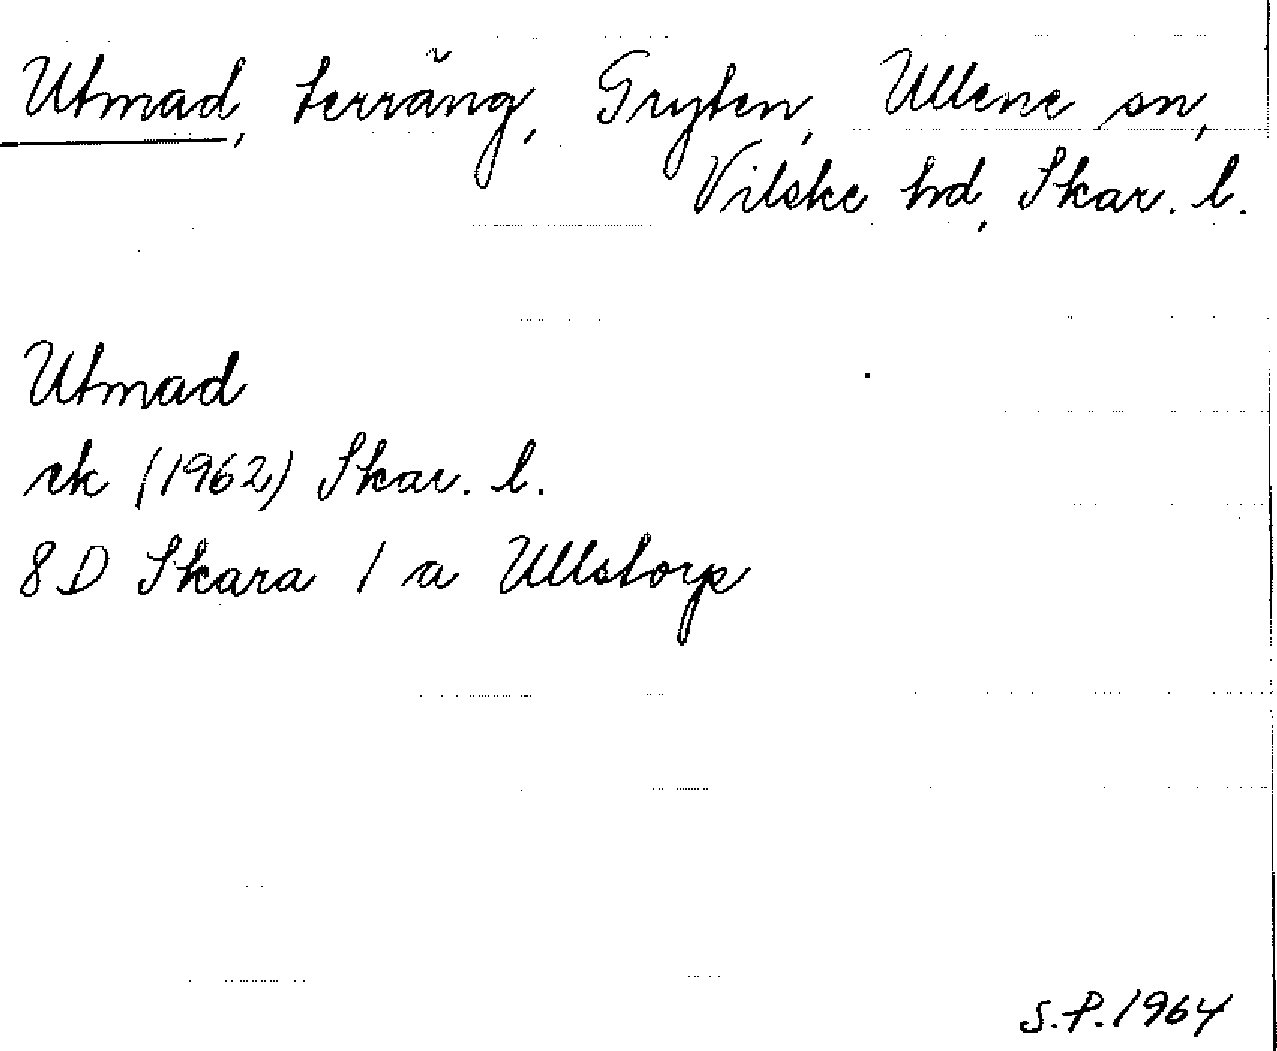 Utmad, terräng, Gryten, Ullene sn,
Vilske hd, Skar. l.
Utmad
rk (1962) Skar. l.
8D Skara 1 a Ullstorp
S.P. 1964